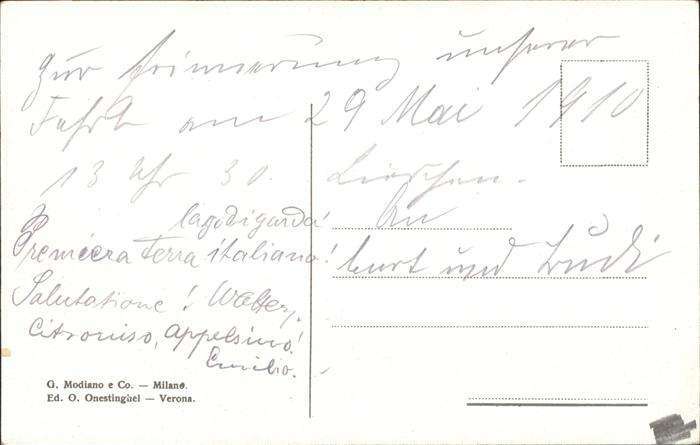 Zur Erinnerung unserer
Fahrt am 29 Mai 1910
13 Uhr 30. Lieschen.
An
Kurt und Rudi
Lago di garda!
Premiera terra italiano!
Salutatione! Walter.
Citroniso, Appelsino!
Emilio.
G. Modiano e Co. — Milano.
Ed. O. Onestinghel — Verona.